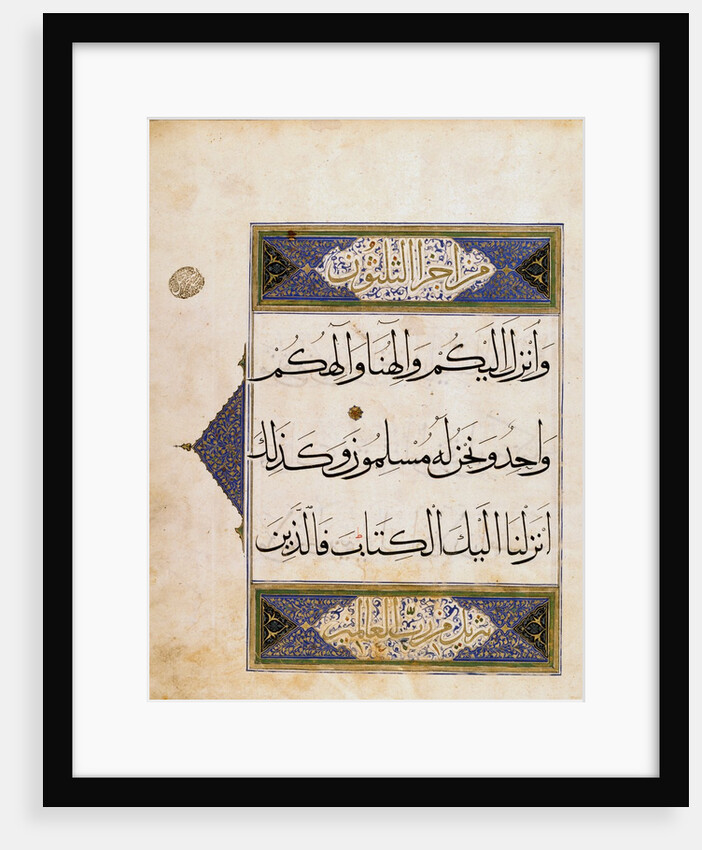 من اجزا الثلثون
وَأُنزِلَ إِلَيْكُمْ وَإِلٰهُنَا وَإِلٰهُكُمْ
وَاحِدٌ وَنَحْنُ لَهُ مُسْلِمُونَ وَكَذَلِكَ
أَنزَلْنَا إِلَيْكَ الْكِتَابَ فَالَّذِينَ
تنزيل من ربّ العالمين